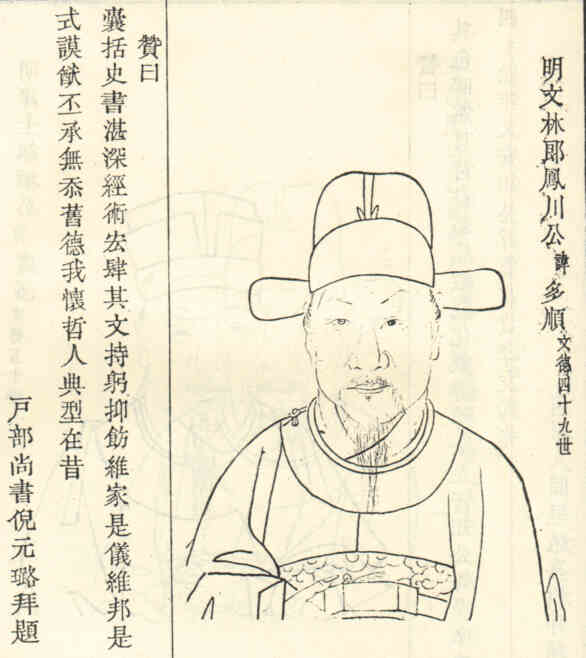 明文林郎鳳川公諱多順文德四十九世
贊曰
囊括史書湛深經術宏肆其文持躬抑飭維家是儀維邦是
式謨猷丕承無忝舊德我懷哲人典型在昔
戶部尚書倪元璐拜題